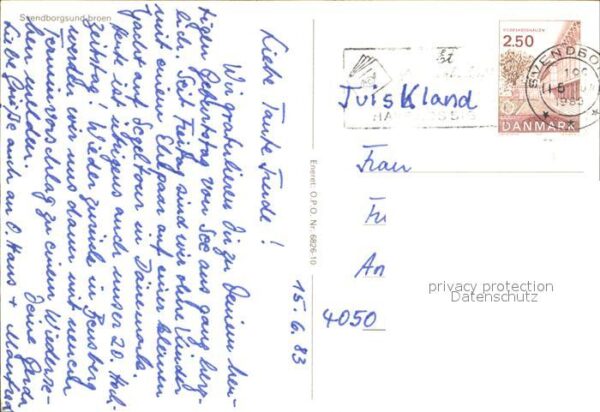 Svendborgsund-broen
Liebe Tante Friede!
Wir gratulieren Dir zu Deinem heu-
tigen Geburtstag von See aus ganz herz-
lich. Seit Freitag sind wir ohne Kinder
mit einem Ehepaar auf einer kleinen
Yacht auf Segeltour in Dänemark.
Heute ist übrigens auch unser 20. Hoch-
zeitstag! Wieder zurück in Bensberg
werden wir uns dann mit neuem
Terminvorschlag zu einem Wiederse-
hen melden. Deine Gerda
Liebe Grüße auch an O. Hans + Manfred
15.6.83
Eneret: O.P.O. Nr. 6826-10
2.50
DANMARK
SVENDBORG
1983
Tuiskland
Frau
Fr
An
4050
privacy protection
Datenschutz